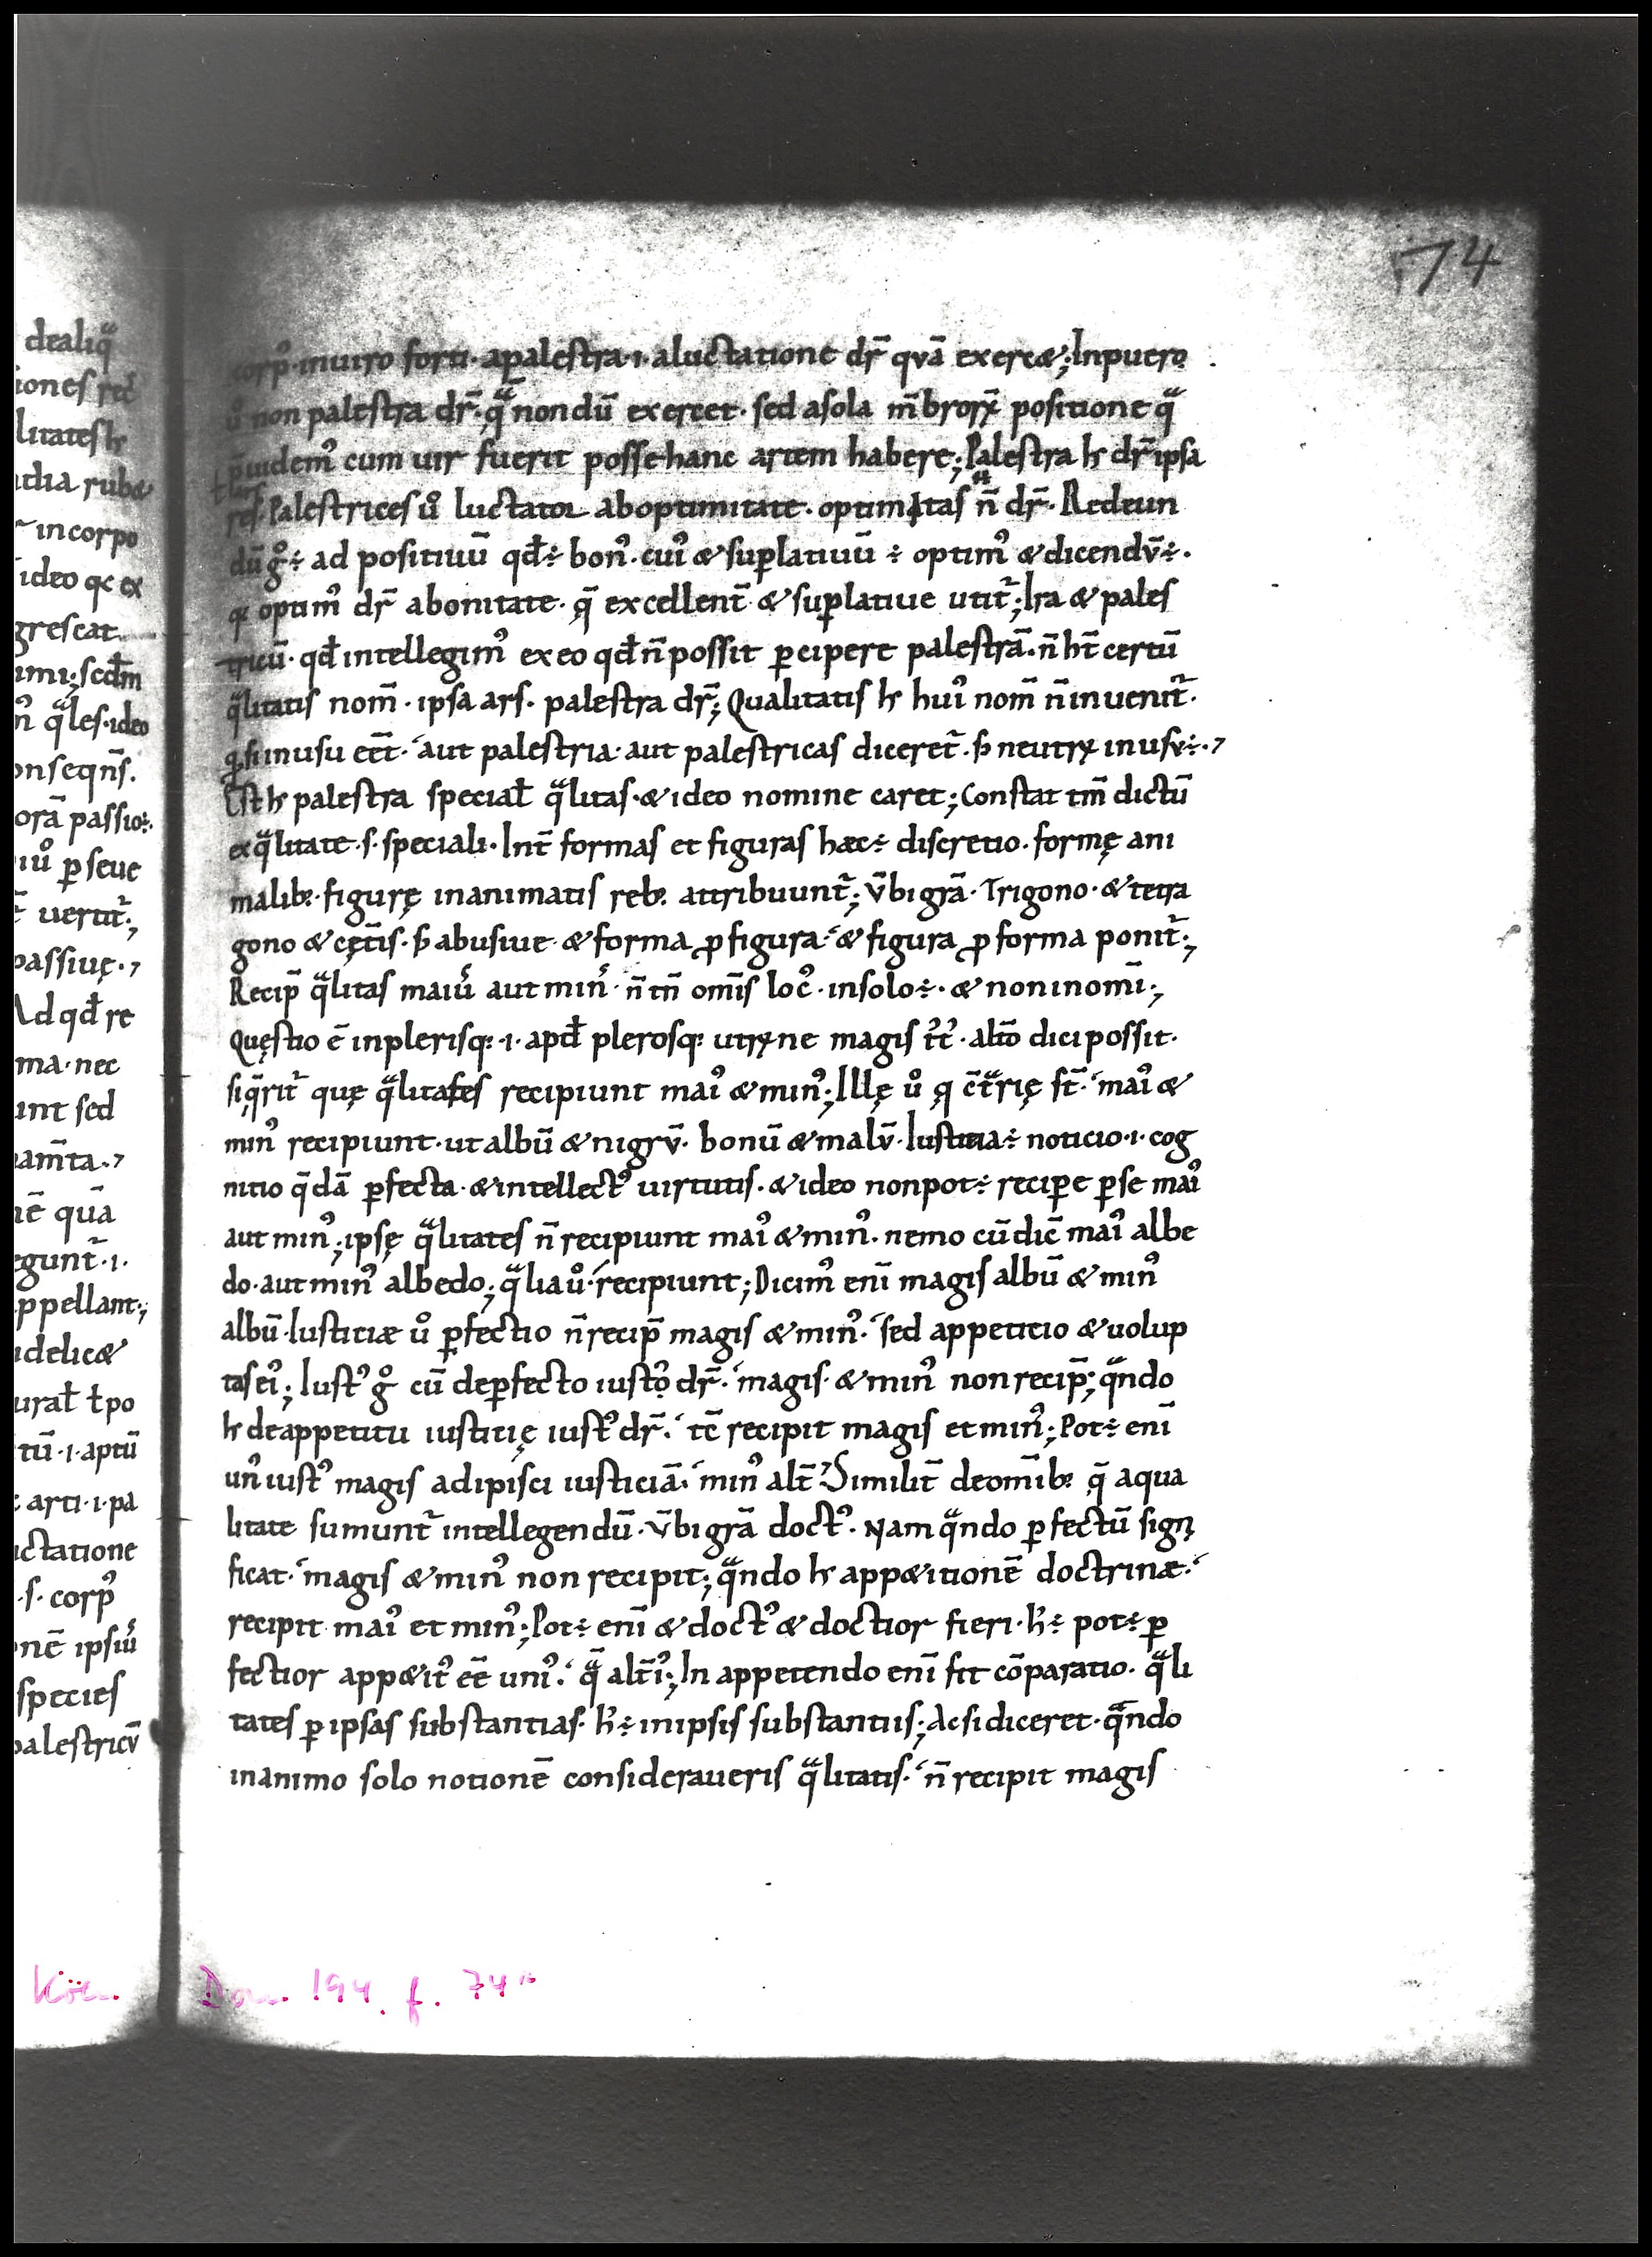 74
dealiq̄
iones
litates h̵
dia rubӕ
incorpo
ideo qꝛ ex
grescat
imi; scd̄m
n᾽ q̄les· ideo
onseqn̄s.
orā passio÷.
iu° ꝑ seue
uertit᷑;
passiuę.,
Ad qđ re
ma· nec
unt sed
am̄ta.,
nē quā
egunt᷑·ı·
ppellant᷑;
idelic&
urał ł po
tū·ı· aptū
arti·ı· pa
uctatione
·s· corꝑ᾽
onē ipsiu᾽
species
palestricū
corꝑ᾽· inuiro forti· apalestra·ı· aluctatione dr̄ quā exerc&; Inpuero
u° non palestra dr̄· q̄ nondū exercet· sed asola m̄broꝝ positione q̄
p̄uidem᾽ cum uir fuerit posse hanc artem habere; Palestra h̵ dr̄ ipsa
ł ars
res· Palestrices u° luctator aboptimitate· optimitas n̄ dr̄· Redeun
dū g° ÷ ad positiuū qđ÷ bon᾽· cui᾽ & suꝑlatiuū ÷ optim᾽ & dicendū÷.
qꝛ optim᾽ dr̄ abonitate· q̄ excellent̄ & suꝑlatiue utit᷑; Ita & pales
tricū· qđ intellegim᾽ ex eo qđ n̄ possit ꝑcipere palestrā· n̄ ht̄ certū
q̄litatis nom̄· ipsa ars· palestra dr̄; Qualitatis h̵ hui᾽ nom̄ n̄ inuenit᷑·
q̣ si inusu eēt· aut palestria· aut palestricas diceret᷑· s; neutrꝝ inusu÷.,
Est h̵ palestra speciał q̄litas· & ideo nomine caret; Constat tm̄ dictū
exq̄litate·s· speciali· Int̄ formas et figuras hæc÷ discretio· formę ani
malib:· figurę inanimatis reb: attribuunt᷑; Vbi grā· Trigono· & tetra
gono & cęt̄is· s; abusiue & forma ꝓ figura· & figura ꝓ forma ponit᷑;
Recip̄ q̄litas maiu᾽ aut min᾽· n̄ tn̄ om̄is loc᾽· insolo÷· & non inomī;
Quęstio ē inplerisq:·ı· apđ plerosq: utrꝝne magis alio dici possit·
siq̄rit᷑ quę q̄litates recipiunt mai᾽ & min᾽; Illę u° q̨ c̄t̄rię st̄· mai᾽ &
min᾽ recipiunt· ut albū & nigrū· bonū & malū· Iusticia÷ noticio·ı· cog
nitio q̄dā ꝑfecta· & intellect᾽ uirtutis· & ideo nonpot÷ reciꝑe ꝑse mai᾽
aut min᾽; ipsę q̄litates n̄ recipiunt mai᾽ & min᾽· nemo cū dic̄ mai᾽ albe
do· aut min᾽ albedo; q̄lia u°· recipiunt; Dicim᾽ enī magis albū & min᾽
albū· Iusticiæ u° ꝑfectio n̄ recip̄ magis & min᾽· sed appeticio & uolup
tas ei᾽; Iust᾽ g° cū deꝑfecto iusto dr̄· magis· & min᾽ non recip̄; q̄ndo
h̵ deappetitu iusticię iust᾽ dr̄· tc̄ recipit magis et min᾽; Pot÷ enī
un᾽ iust᾽ magis adipisci iusticiā· min᾽ alt̄· Similit̄ deom̄ib: q̄ aqua
litate sumunt᷑ intellegendū· Vbi grā doct᾽· Nam q̄ndo ꝑfectū signi
ficat· magis & min᾽ non recipit; q̄ndo h̵ app&itionē doctrinæ·
recipit mai᾽ et min᾽; Pot÷ enī & doct᾽ & doctior fieri· h᾽÷ pot÷ ꝑ
fectior app&it᾽ eē uni᾽· q̄ alt̄i᾽; In appetendo enī fit cōparatio· q̄li
tates ꝑ ipsas substantias· h᾽÷ inipsis substantiis; Ac si diceret· q̄ndo
inanimo solo notionē consideraueris q̄litatis· n̄ recipit magis
Köln. Dom. 194. f. 74ʳ